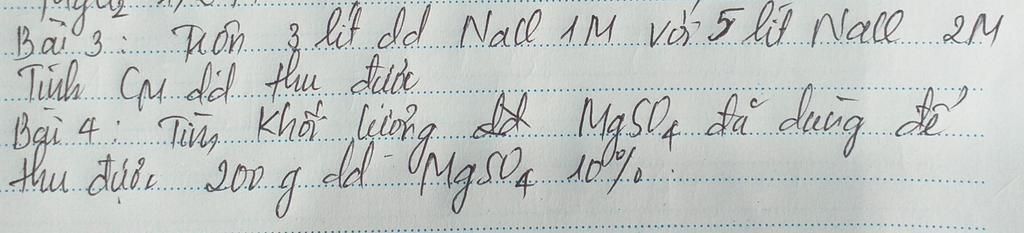 Bài 3: Trộn 3 lít dd NaCl 1M với 5 lít NaCl 2M
Tính CM dd thu được
Bài 4: Tính khối lượng MgSO4 đã dùng để
thu được 200 g dd MgSO4 10%.